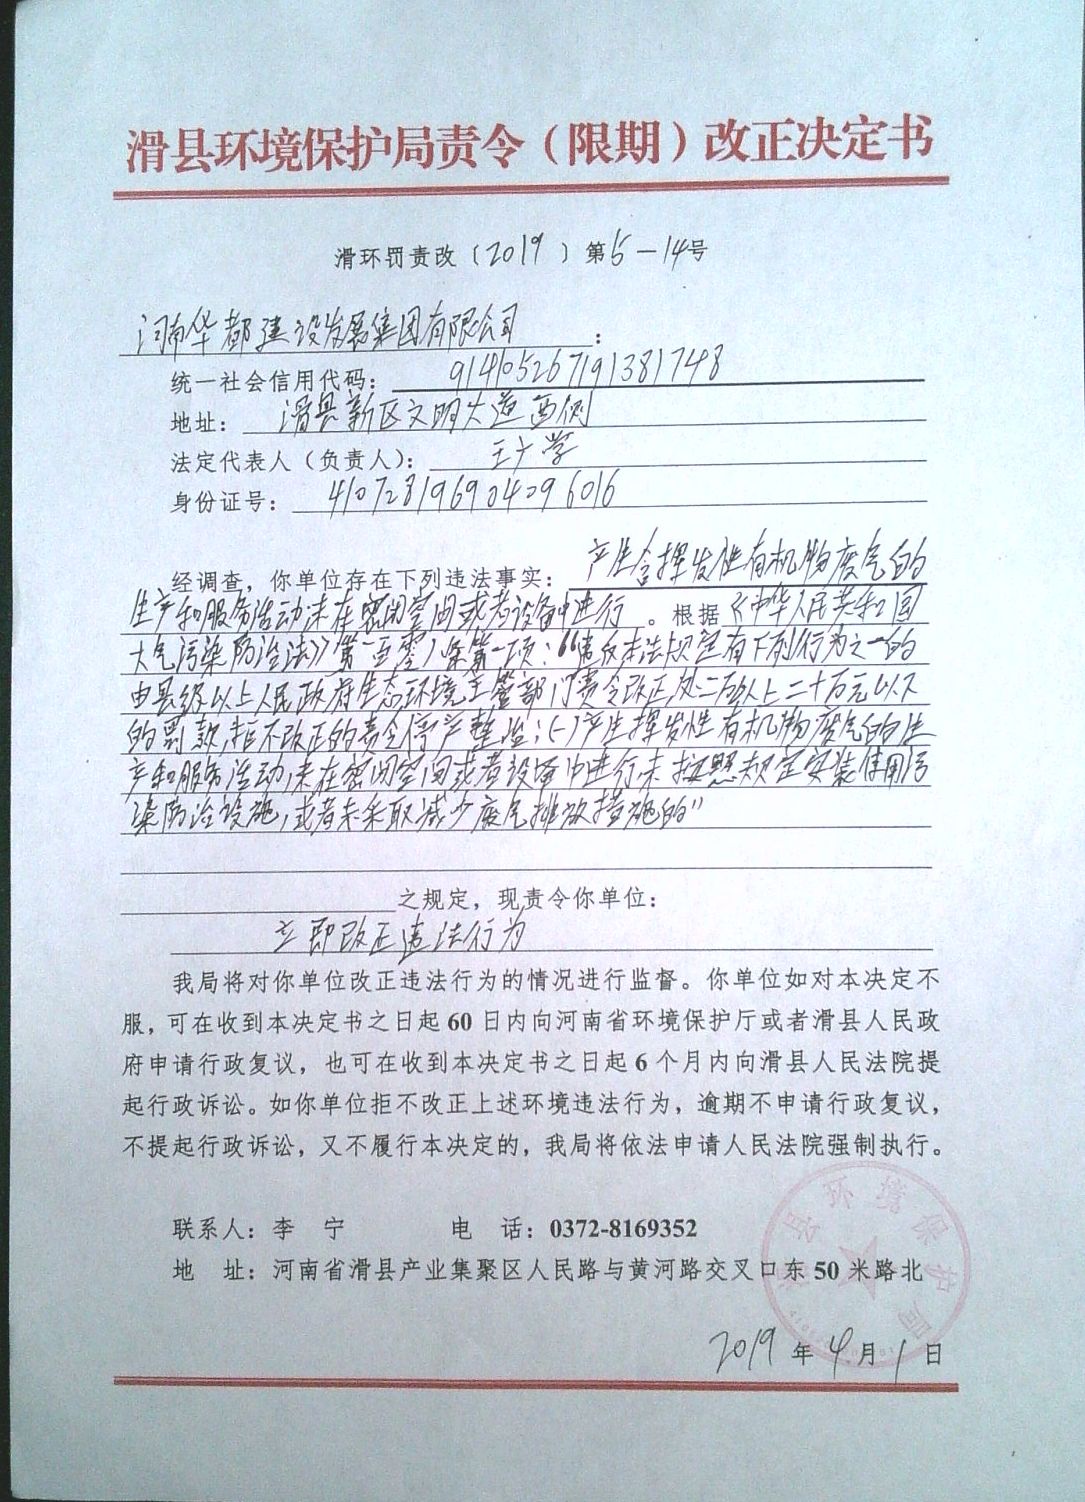 滑县环境保护局责令（限期）改正决定书
滑环罚责改〔2019〕第5-14号
河南华都建设发展集团有限公司：
统一社会信用代码：914105267191381748
地址：滑县新区文明大道西侧
法定代表人（负责人）：王广学
身份证号：410728196904096016
经调查，你单位存在下列违法事实：产生含挥发性有机物废气的
生产和服务活动，未在密闭空间或者设备中进行。根据《中华人民共和国
大气污染防治法》第一百零八条第一项：“违反本法规定有下列行为之一的
由县级以上人民政府生态环境主管部门责令改正处二万以上二十万元以下
的罚款，拒不改正的责令停产整治：(一)产生挥发性有机物废气的生
产和服务活动，未在密闭空间或者设备中进行，未按照规定安装使用污
染防治设施，或者未采取减少废气排放措施的”
之规定，现责令你单位：
立即改正违法行为
我局将对你单位改正违法行为的情况进行监督。你单位如对本决定不
服，可在收到本决定书之日起60日内向河南省环境保护厅或者滑县人民政
府申请行政复议，也可在收到本决定书之日起6个月内向滑县人民法院提
起行政诉讼。如你单位拒不改正上述环境违法行为，逾期不申请行政复议，
不提起行政诉讼，又不履行本决定的，我局将依法申请人民法院强制执行。
联系人：李 宁 电 话：0372-8169352
地 址：河南省滑县产业集聚区人民路与黄河路交叉口东50米路北
滑县环境保护局
2019年4月1日